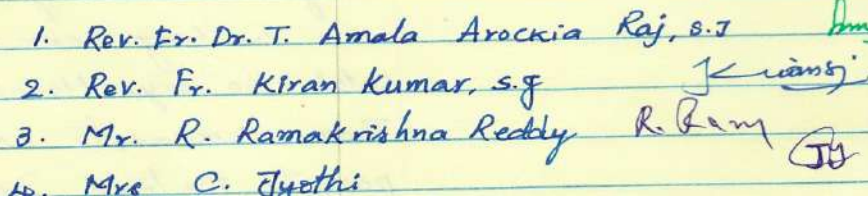 1. Rev. Fr. Dr. T. Amala Arockia Raj, S.J
2. Rev. Fr. Kiran Kumar, S.J
3. Mr. R. Ramakrishna Reddy R. Ram
4. Mrs C. Jyothi